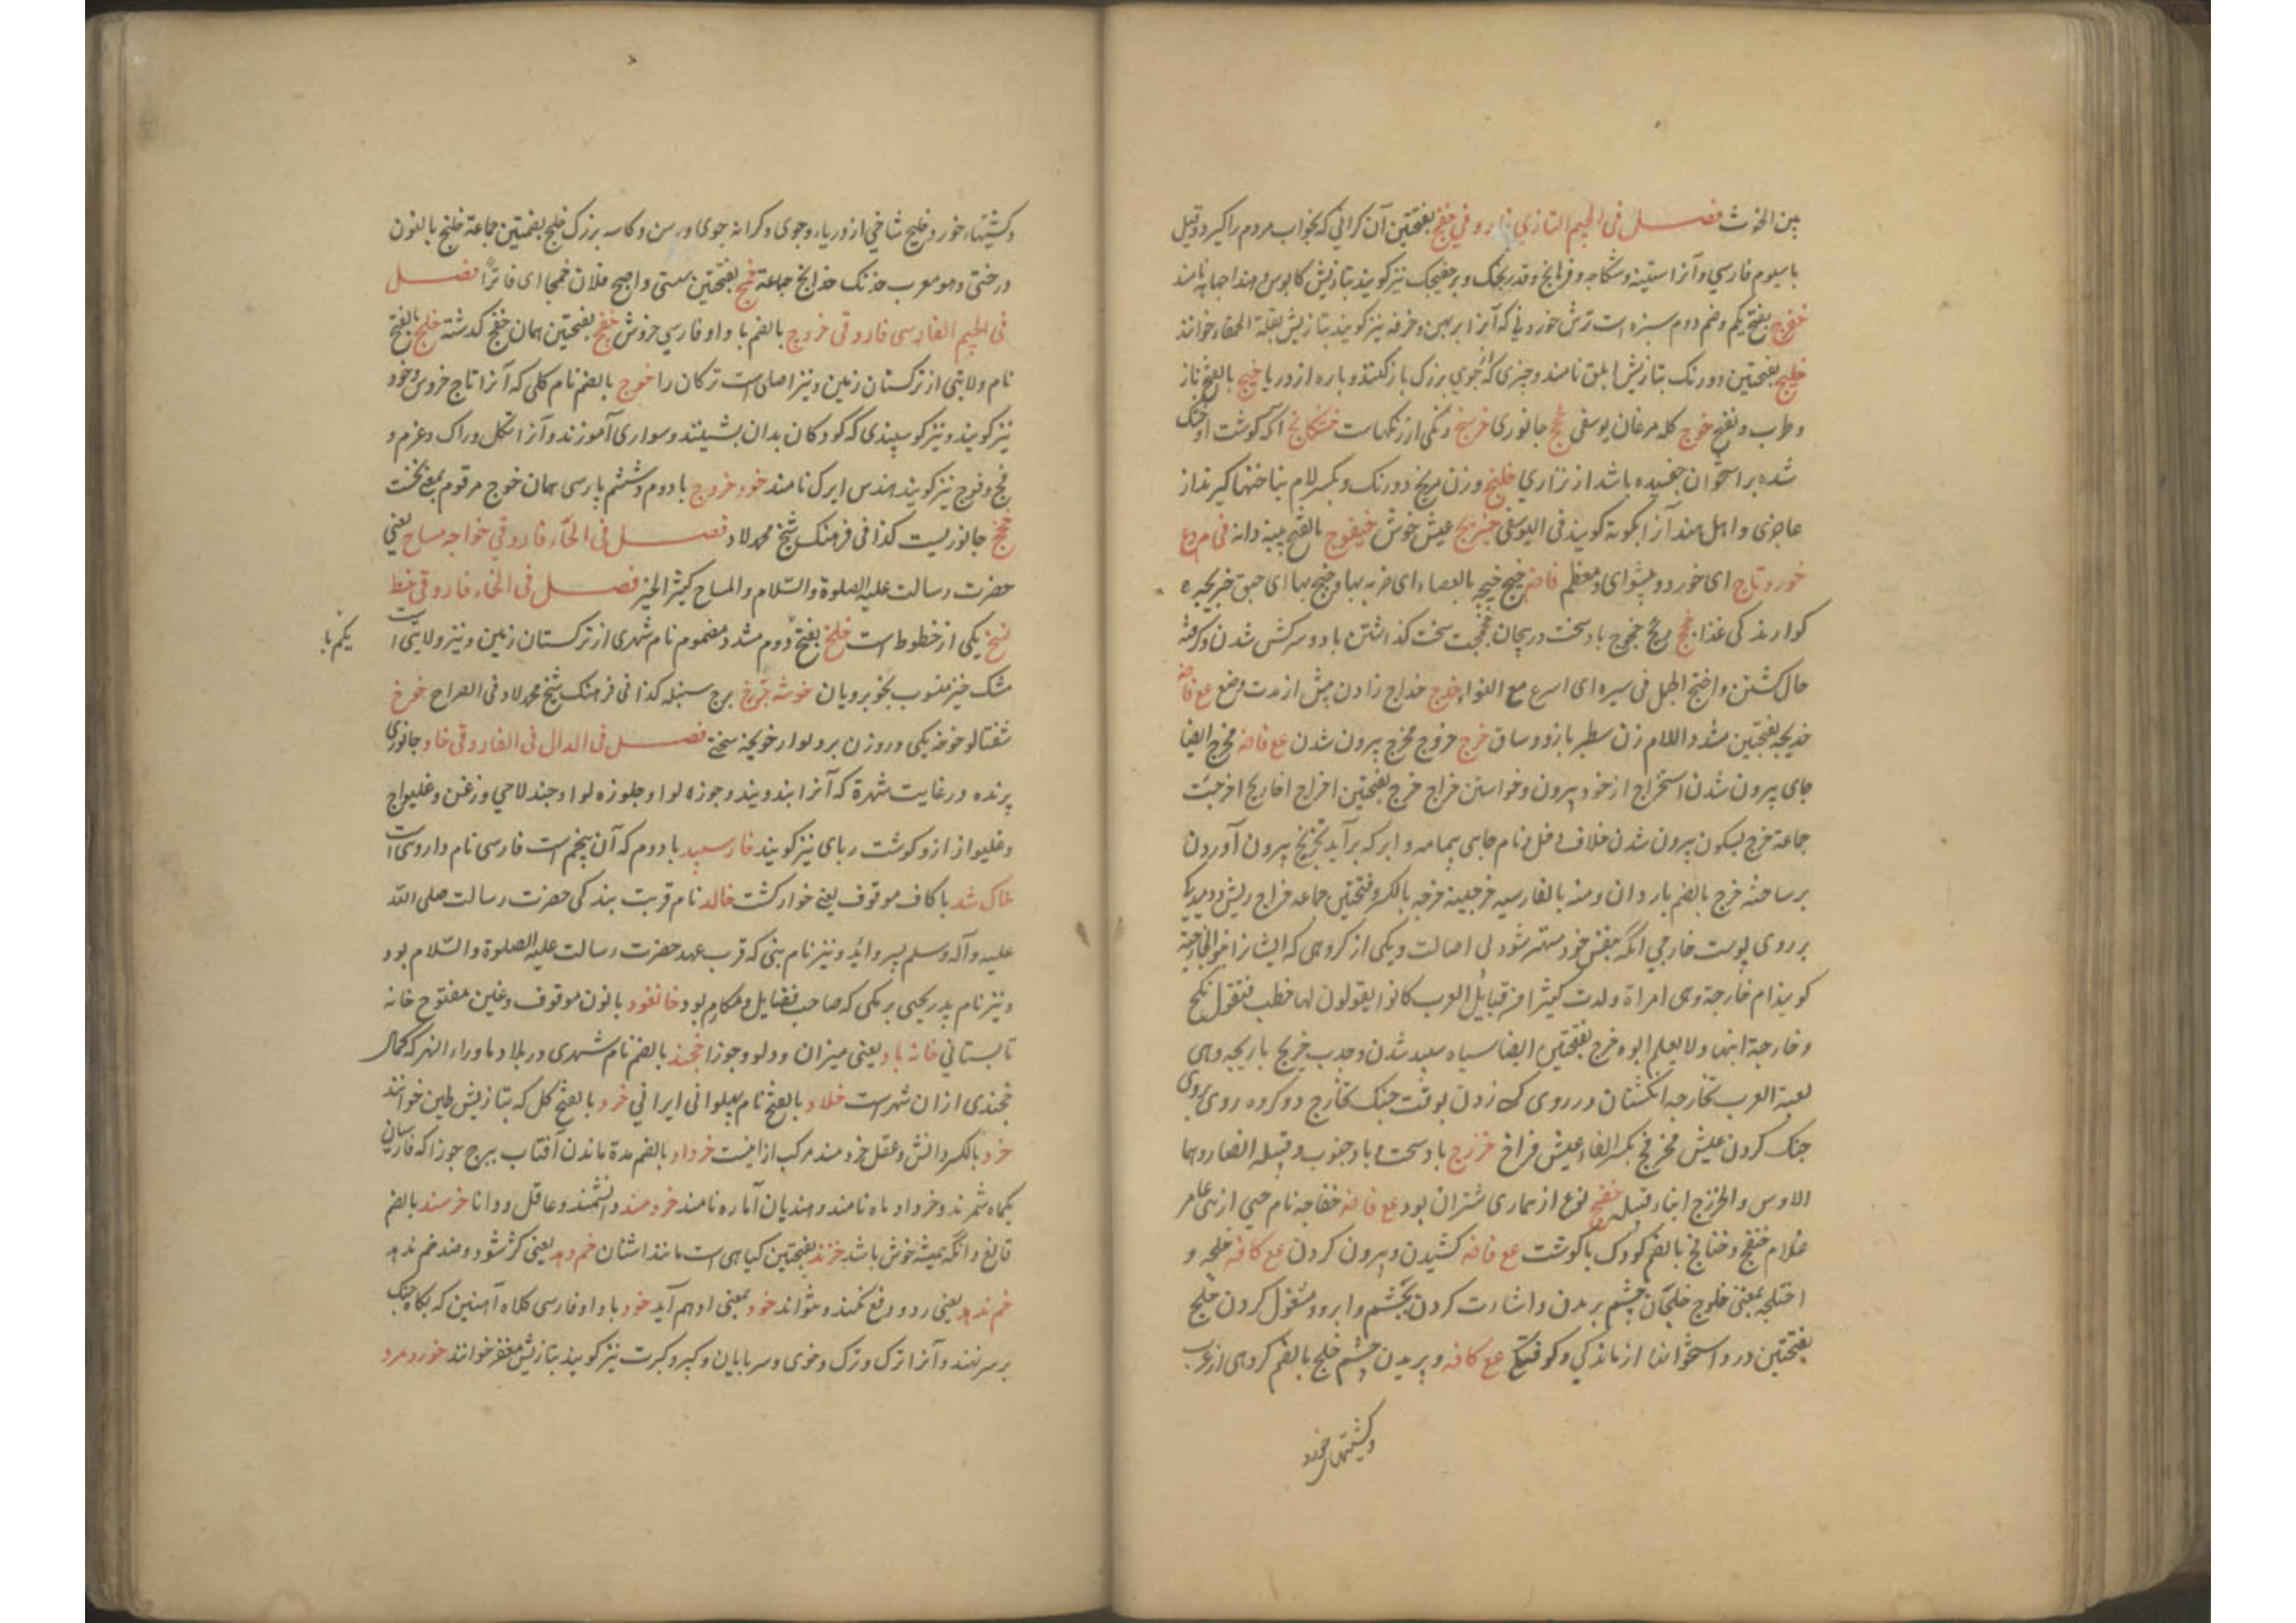 بین الخرث فصل فی الجیم التازی فاروقی خفج بفتحتین آن گرانی که بخواب مردم را گیرد و قیل
با سیوم فارسی و آنرا ستنبه و سکاجه و فرانج و قدرنجک و برخفجک نیز گویند بتازیش کابوس و هند اجهاپه نامند
خفرج بفتح یکم و ضم دوم سبزه است ترش خوردنی که آنرا بربهن و خرفه نیز گویند بتازیش بقلة الحمقاء خوانند
خلیج بفتحتین دورنک بتازیش ابلق نامند و چیزی که از جوی بزرک باز کنند و پاره از دریا خنج بالفتح ناز
و طرب و بفتح خوج کله مرغان یوسفی خج جانوری خرسنج رنکی از رنکهاست خشکانج آنکه گوشت او خشک
شده بر استخوان چفسیده باشد از نزاری خلنج وزن مریخ دورنک و بکسر لام بناخنها گیرند از
عاجزی و اهل هند آنرا چکوته گویند فی الیوسفی خنزیج عیش خوش خیفوج بالفتح پنبه دانه فی م وع
خورد تاج ای خورد و پیشوای و معظم فاضه خبج خبجه بالعصاء ای ضربه بها و خبج بها ای حبق خبریجه
کوارنده کی غذا خج ریح خجوج باد سخت در پیچان خجخجت سخت گذاشتن باد و سرکش شدن و گرفته
حال کشتن و اختج الجمل فی سیره ای اسرع مع التواء خدج خداج زادن پیش از مدت وضع مع فاضه
خدیجه بفتحتین مشدد اللام زن سطبر بازو و ساق خرج خروج مخرج بیرون شدن مع فاضه مخرج ایضا
جای بیرون شدن استخراج از خود بیرون و خواستن خراج خرج بفتحتین اخراج اخاریج اخرجت
جماعة خرج بسکون بیرون شدن خلاف دخل و نام جایی بیمامه و ابر که برآید تخریج بیرون آوردن
بر ساخته خرج بالضم باردان و منه بالفارسیه خرجینه خرجه بالکسر و فتحتین جماعه خراج ریش و دمیدیکی
بر روی پوست خارجی آنکه بنفس خود مهتر شود بی اصالت و یکی از گروهی که ایشانرا خوارج خارجیة
گویند ام خارجة و هی امراة ولدت کثیرا من قبایل العرب کانوا یقولون لها خطب فتقول نکح
و خارجة ابنها و لا یعلم ابوه خرج بفتحتین ایضا سیاه سپید شدن و جدب خریج باریجه و هی
لعبة العرب تخارجه انکشتان در روی یک زدن بوقت جنک تخارج دو گروه روی بروی
جنک کردن عیش مخرفج بکسر الفاء عیش فراخ خزرج باد سخت و باد جنوب و قبیله انصار و هما
الاوس و الخزرج ابناء قیله خفج نوع از بیماری شتران بود مع فاضه خفاجه نام حیی از بنی عامر
غلام خنفج و خنافج بالضم کودک باگوشت مع فاضه کشیدن و بیرون کردن مع کافه خلجه و
اختلجه بمعنی خلوج خلجان چشم بریدن و اشارت کردن بچشم و ابرو و مشغول کردن خلج
بفتحتین درد استخوانها از ماندگی و کوفتگی مع کافه و پریدن چشم خلج بالضم گروهی از عرب
و کشتیهاء خورد
و کشتیهاء خورد و خلیج شاخی از دریاء و جوی و کرانه جوی و رسن و کاسه بزرک خلج بضمتین جماعة خلنج بالنون
درختی و هو معرب خدنک خدانج جماعة خمج بفتحتین سستی و اصبح فلان خمجا ای فاترا فصل
فی الجیم الفارسی فاروقی خروچ بالضم با واو فارسی خروش خفچ بفتحتین همان خفج گذشته خلچ بالفتح
نام ولایتی از ترکستان زمین و نیز اصلی است ترکان را خوچ بالضم نام کلی که آنرا تاج خروس و خود
نیز گویند و نیز گوسپندی که کودکان بدان بنشینند و سواری آموزند و آنرا تکل و راک و غرم و
قچ و قوچ نیز گویند هندش ابرک نامند خود خروچ با دوم و ششم پارسی همان خوچ مرقوم بمعنی نخست
خخج جانوریست کذا فی فرهنک شیخ محمد لاد فصل فی الحاء فاروقی خواجه مساح یعنی
حضرت رسالت علیه الصلوة والسلام والمساح کثیر الخیر فصل فی الخاء فاروقی خط
نسخ یکی از خطوط است خلخ بفتح دوم مشدد مضموم نام شهری از ترکستان زمین و نیز ولایتی است
یکم با
مشک خیز منسوب بخوبرویان خوشه چرخ برج سنبله کذا فی فرهنک شیخ محمد لاد فی الصراح خوخ
شفتالو خوخه یکی و روزن بر دیوار خویخه سختی فصل فی الدال فی الفاروقی خاد جانوری
پرنده در غایت شهرة که آنرا بند و پند و جوزه لوا و جلوزه لوا و جندلاحی و زغن و غلیواج
و غلیواز ازو گوشت ربای نیز گویند خار سپید با دوم که آن پنجم است فارسی نام داروی است
خاک شد با کاف موقوف یعنی خوار کشت خالد نام قربت بندکی حضرت رسالت صلی الله
علیه و آله و سلم بسر و آید و نیز نام نبی که قرب عهد حضرت رسالت علیه الصلوة والسلام بود
و نیز نام پدر یحیی برمکی که صاحب فضایل و مکارم بود خانغود با نون موقوف و غین مفتوح خانه
تابستانی خانه باد یعنی میزان و دلو و جوزا خجند بالضم نام شهری در بلاد ماوراء النهر که کمال
خجندی ازان شهر است خلاد بالفتح نام پهلوانی ایرانی خرد بالفتح گل که بتازیش طین خوانند
خرد بالکسر دانش و عقل خردمند مرکب ازینست خرداد بالضم مدة ماندن آفتاب ببرج جوزا که فارسیان
یکماه شمرند و خرداد ماه نامند و هندیان آماره نامند خردمند دانشمند و عاقل و دانا خرسند بالضم
قانع و آنکه همیشه خوش باشد خرند بفتحتین کیاهی است مانند اشنان خم دهد یعنی کژ شود و ضد خم ندهد
خم ندهد یعنی رد و دفع نکند و نتواند خود بمعنی او هم آید خود با واو فارسی کلاه آهنین که بکاه جنک
بر سر نهند و آنرا ترک و ترک و خوی و سرپایان و کبر و کبرت نیز گویند بتازیش مغفر خوانند خورد مرد